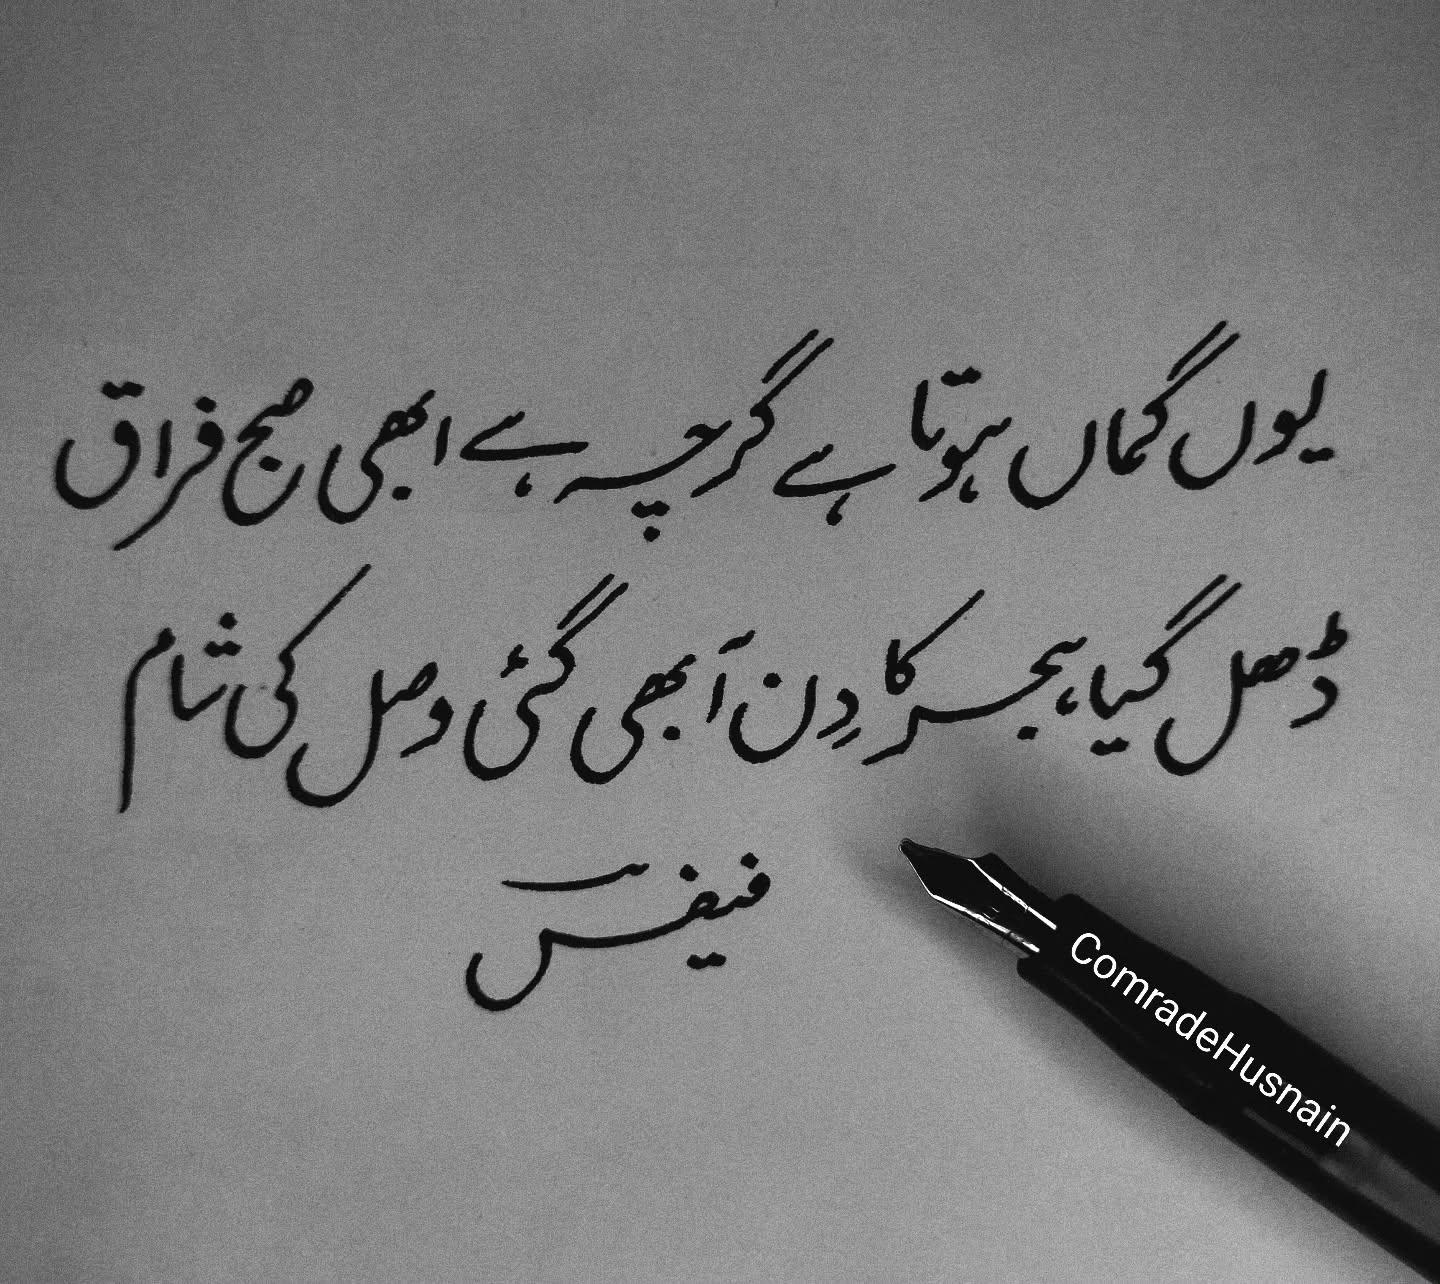 یوں گماں ہوتا ہے گرچہ ہے ابھی صبح فراق
ڈھل گیا، ہجر کا دِن آ بھی گئی وصل کی شام
فیض
ComradeHusnain